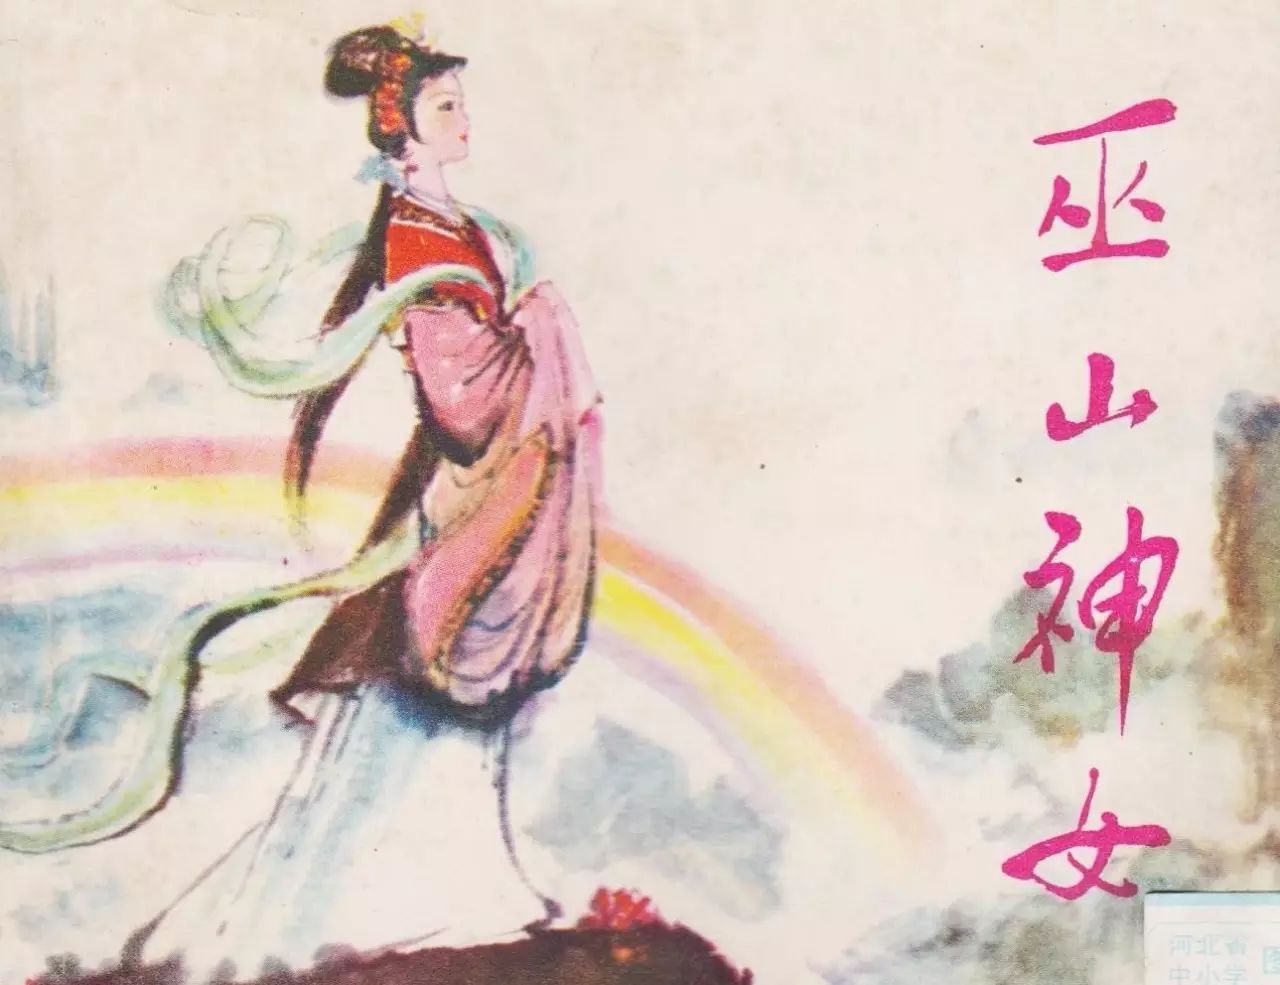 巫山神女
河北省
中小学
图